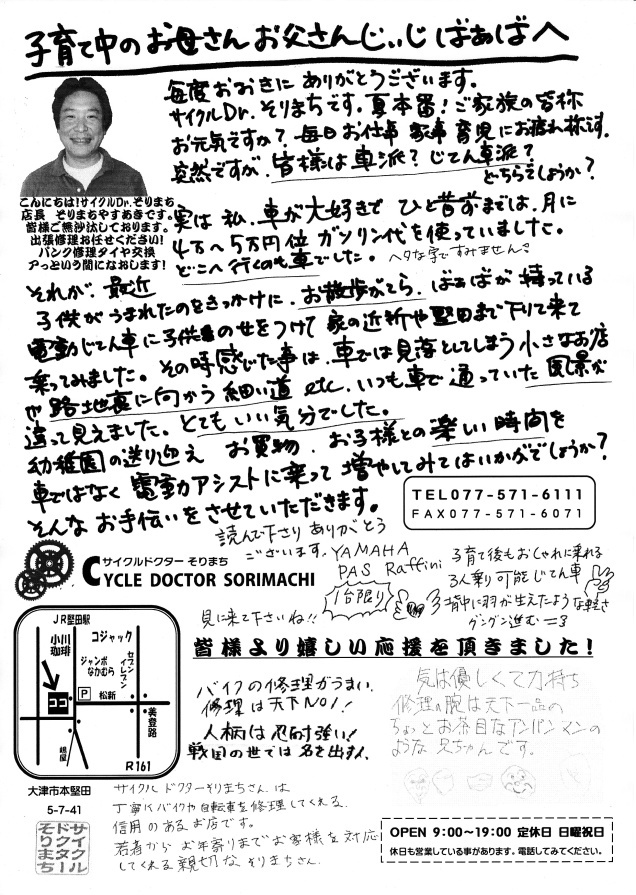 子育て中のお母さんお父さんじぃじばぁばへ
毎度おおきにありがとうございます。
サイクルDr.そりまちです。夏本番！ご家族の皆称
お元気ですか？毎日お仕事家事育児にお疲れ様です。
突然ですが、皆様は車派？じてん車派？
どちらでしょうか？
こんにちは!サイクルDr.そりまち
店長 そりまちやすあきです。
皆様ご無沙汰しております。
出張修理お任せください!
パンク修理タイヤ交換
アっという間になおします!
実は私、車が大好きでひと昔前までは、月に
4万〜5万円位ガソリン代を使っていました。
どこへ行くのも車でした。ヘタな字ですみません
それが、最近
子供がうまれたのをきっかけに、お散歩がてら、ばぁばが持っている
電動じてん車に子供のせをつけて家の近所や堅田まで下りて来て
乗ってみました。その時感じた事は、車では見落としてしまう小さなお店
や路地裏に向かう細い道etc.いつも車で通っていた風景が
違って見えました。とてもいい気分でした。
幼稚園の送り迎えお買物、お子様との楽しい時間を
車ではなく電動アシストに乗って増やしてみてはいかがでしょうか？
そんなお手伝いをさせていただきます。
読んで下さりありがとう
ございます。
TEL077-571-6111
FAX077-571-6071
サイクルドクター そりまち
CYCLE DOCTOR SORIMACHI
YAMAHA
PAS Raffini
1台限り
見に来て下さいね!!
子育て後もおしゃれに乗れる
3人乗り可能じてん車
背中に羽が生えたような軽さ
グングン進む
JR堅田駅
小川珈琲
コジャック
ジャンボなかむら
セブンイレブン
ココ
P
松新
美登路
R161
皆様より嬉しい応援を頂きました!
バイクの修理がうまい、
修理は天下NO1！
人柄は忍耐強い！
戦国の世では名を出すす。
気は優しくて力持ち
修理の腕は天下一品の
ちょっとお茶目なアンパンマンの
ような兄ちゃんです。
大津市本堅田
5-7-41
サイクルドクターそりまち
サイクルドクターそりまちさんは
丁寧にバイクや自転車を修理してくれる、
信用のあるお店です。
若者からお年寄りまでお客様を対応
してくれる親切なそりまちさん。
OPEN 9:00~19:00 定休日 日曜祝日
休日も営業している事があります。電話してみてください。